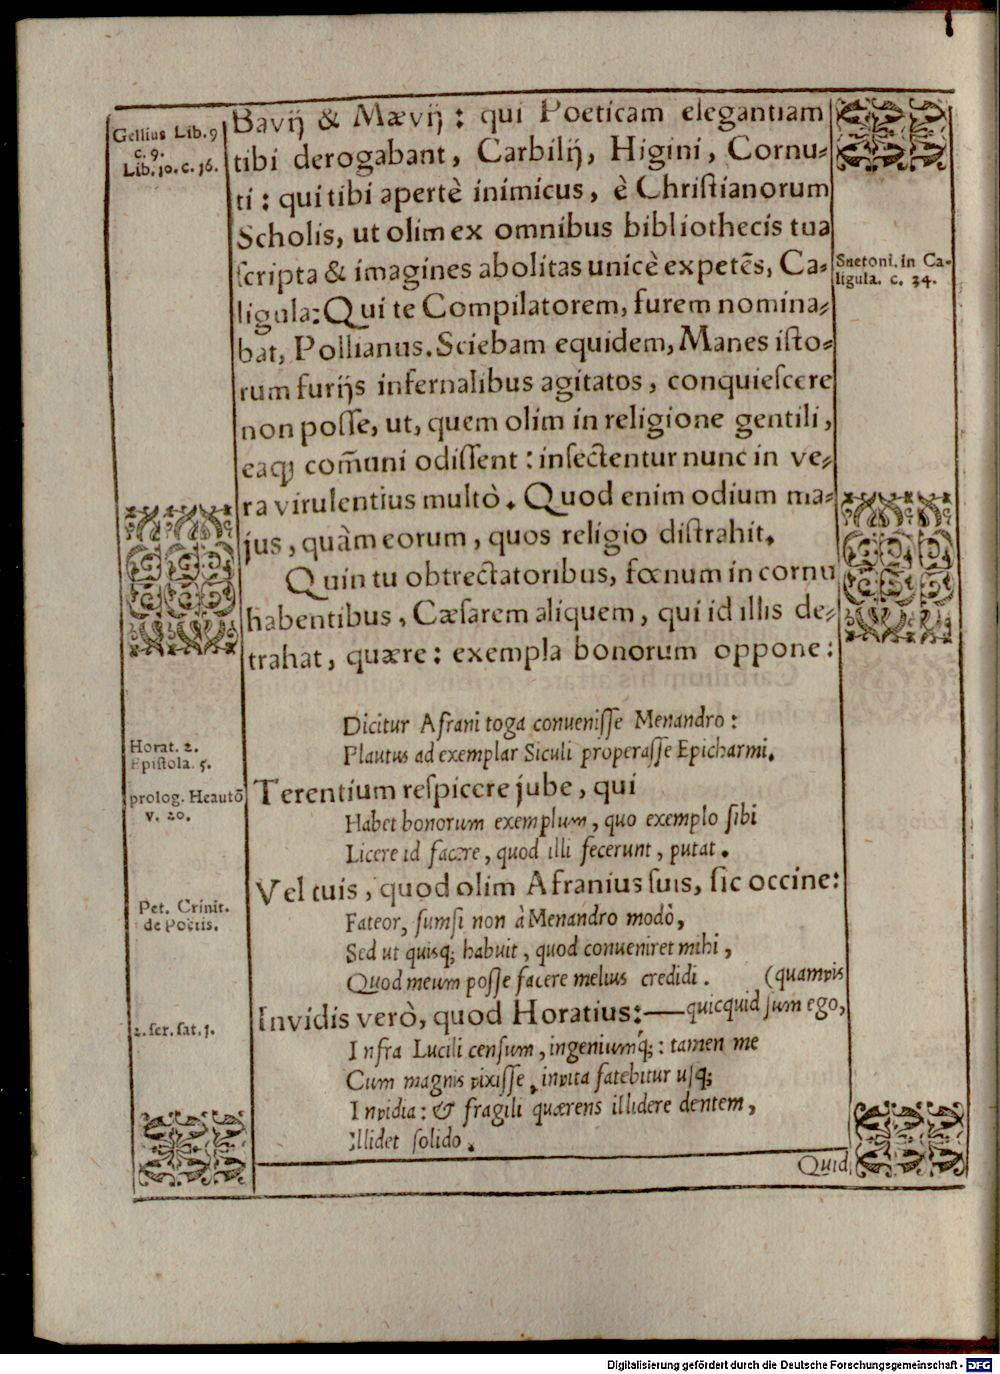 Gellius Lib. 9
c. 9.
Lib. 10. c. 16.
Bavij & Mævij : qui Poeticam elegantiam
tibi derogabant, Carbilij, Higini, Cornu-
ti : qui tibi apertè inimicus, è Christianorum
Scholis, ut olim ex omnibus bibliothecis tua
scripta & imagines abolitas unicè expetẽs, Ca-
ligula: Qui te Compilatorem, furem nomina-
bat, Pollianus. Sciebam equidem, Manes isto-
rum furijs infernalibus agitatos, conquiescere
non posse, ut, quem olim in religione gentili,
eaq; com̃uni odissent : insectentur nunc in ve-
ra virulentius multò. Quod enim odium ma-
jus, quàm eorum, quos religio distrahit.
Suetoni. in Ca-
ligula. c. 34.
Quin tu obtrectatoribus, fœnum in cornu
habentibus, Cæsarem aliquem, qui id illis de-
trahat, quære : exempla bonorum oppone :
Horat. 2.
Epistola. 5.
Dicitur Afrani toga convenisse Menandro :
Plautus ad exemplar Siculi properasse Epicharmi.
prolog. Heautõ
v. 20.
Terentium respicere jube, qui
Habet bonorum exemplum, quo exemplo sibi
Licere id facere, quod illi fecerunt, putat.
Pet. Crinit.
de Poëtis.
Vel tuis, quod olim Afranius suis, sic occine:
Fateor, sumsi non à Menandro modò,
Sed ut quisq; habuit, quod conveniret mihi,
Quod meum posse facere melius credidi. (quamvis
2. ser. sat. 1.
Invidis verò, quod Horatius: — quicquid sum ego,
Infra Lucili censum, ingeniumq́; : tamen me
Cum magnis vixisse, invita fatebitur usq;
Invidia : & fragili quærens illidere dentem,
Illidet solido.
Quid
Digitalisierung gefördert durch die Deutsche Forschungsgemeinschaft - DFG